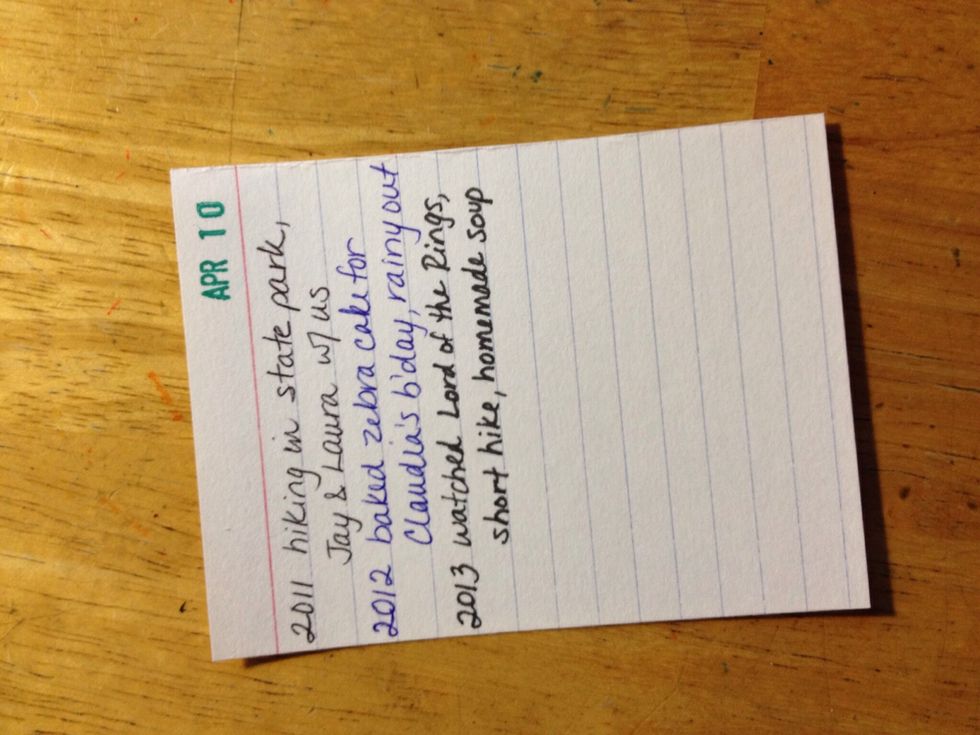 APR 10
2011 hiking in state park,
Jay & Laura w/ us
2012 baked zebra cake for
Claudia's b'day, rainy out
2013 watched Lord of the Rings,
short hike, homemade soup